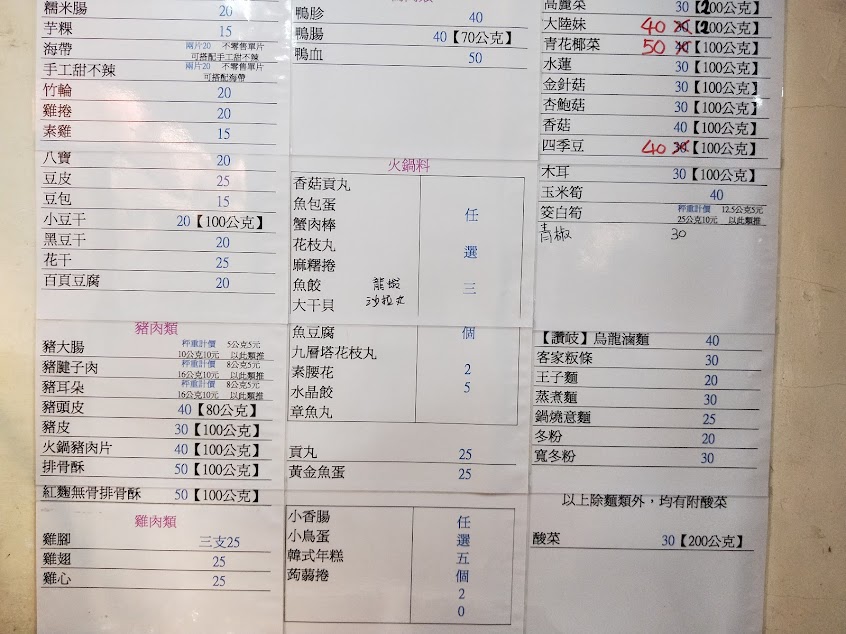 糯米腸 20
芋粿 15
海帶 兩片20 不零售單片
可搭配手工甜不辣
手工甜不辣 兩片20 不零售單片
可搭配海帶
竹輪 20
雞捲 20
素雞 15
八寶 20
豆皮 25
豆包 15
小豆干 20【100公克】
黑豆干 20
花干 25
百頁豆腐 20
豬肉類
豬大腸 秤重計價 5公克5元
10公克10元 以此類推
豬腱子肉 秤重計價 8公克5元
16公克10元 以此類推
豬耳朵 秤重計價 8公克5元
16公克10元 以此類推
豬頭皮 40【80公克】
豬皮 30【100公克】
火鍋豬肉片 40【100公克】
排骨酥 50【100公克】
紅麴無骨排骨酥 50【100公克】
雞肉類
雞腳 三支25
雞翅 25
雞心 25
鴨胗 40
鴨腸 40【70公克】
鴨血 50
火鍋料
香菇貢丸
魚包蛋
蟹肉棒
花枝丸
麻糬捲
魚餃 龍蝦
大干貝 沙拉丸
魚豆腐
九層塔花枝丸
素腰花
水晶餃
章魚丸
任
選
三
個
2
5
貢丸 25
黃金魚蛋 25
小香腸
小鳥蛋
韓式年糕
蒟蒻捲
任
選
五
個
2
0
高麗菜 30【200公克】
大陸妹 40 30【200公克】
青花椰菜 50 40【100公克】
水蓮 30【100公克】
金針菇 30【100公克】
杏鮑菇 30【100公克】
香菇 40【100公克】
四季豆 40 30【100公克】
木耳 30【100公克】
玉米筍 40
筊白筍 秤重計價 12.5公克5元
25公克10元 以此類推
青椒 30
【讚岐】烏龍滷麵 40
客家粄條 30
王子麵 20
蒸煮麵 30
鍋燒意麵 25
冬粉 20
寬冬粉 30
以上除麵類外，均有附酸菜
酸菜 30【200公克】